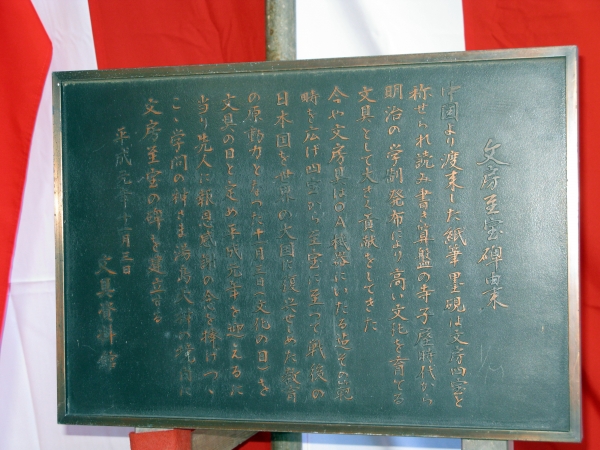 文房至宝碑由来
中国より渡来した紙筆墨硯は文房四宝と
称せられ読み書き算盤の寺子屋時代から
明治の学制発布により高い文化を育てる
文具として大きく貢献をしてきた
今や文房具はOA機器にいたる迄その範
疇を広げ四宝から至宝に至って戦後の
日本国を世界の大国に復立せしめた教育
の原動力となった十一月三日(文化の日)を
文具の日と定め平成元年を迎えるに
当り先人に報恩感謝の念を捧げつゝ
こゝ学問の神さま湯島天神の境内に
文房至宝の碑を建立する
平成元年十一月三日
文具資料館